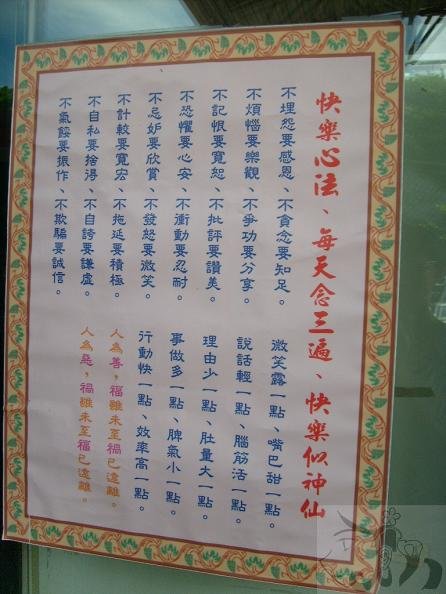 快樂心法、每天念三遍、快樂似神仙
不埋怨要感恩、不貪念要知足。
不煩惱要樂觀、不爭功要分享。
不記恨要寬恕、不批評要讚美。
不恐懼要心安、不衝動要忍耐。
不忌妒要欣賞、不發怒要微笑。
不計較要寬宏、不拖延要積極。
不自私要捨得、不自誇要謙虛。
不氣餒要振作、不欺騙要誠信。
微笑露一點、嘴巴甜一點。
說話輕一點、腦筋活一點。
理由少一點、肚量大一點。
事做多一點、脾氣小一點。
行動快一點、效率高一點。
人為善，福雖未至禍已遠離。
人為惡，禍雖未至福已遠離。